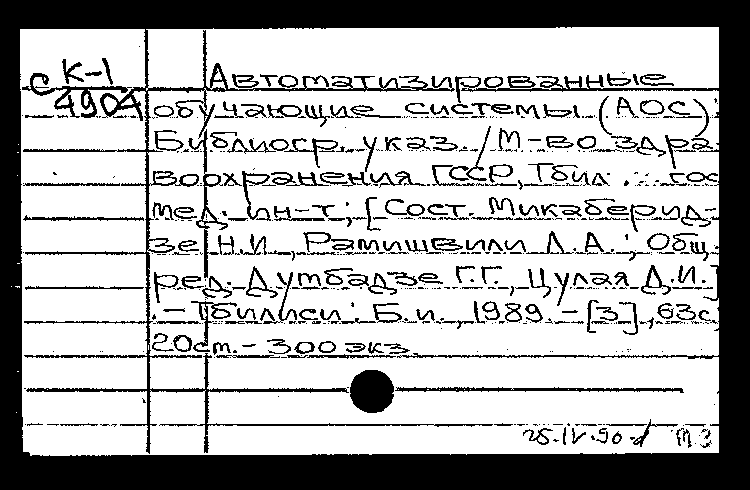 с К-1 Автоматизированные
4904 обучающие системы (АОС):
Библиогр. указ. / М-во здра-
воохранения ГССР, Тбил. гос
мед. ин-т; [Сост. Микаберид-
зе Н.И., Рамишвили Л.А.; Общ.
ред. Думбадзе Г.Г., Цулая Д.И.]
.-Тбилиси: Б.и., 1989.-[3], 63с
20см.-300 экз.
25.IV.90